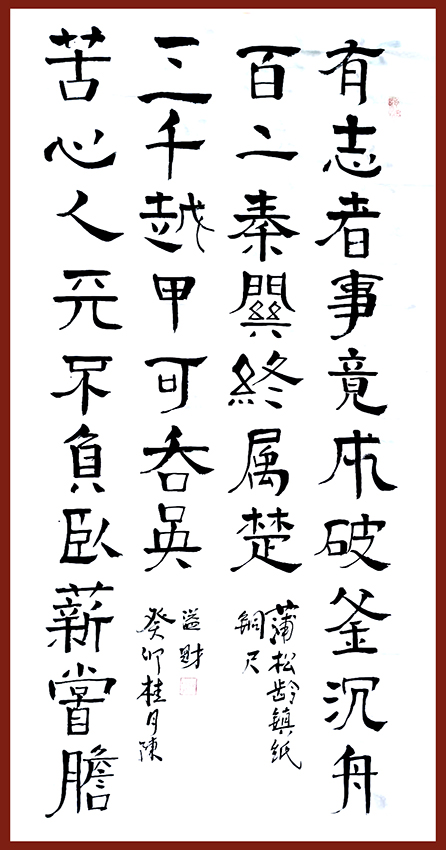 有志者事竟成破釜沉舟
百二秦關終属楚
蒲松龄鎮紙
銅尺
苦心人天不負臥薪嘗膽
三千越甲可吞吳
癸卯桂月陳
溢財